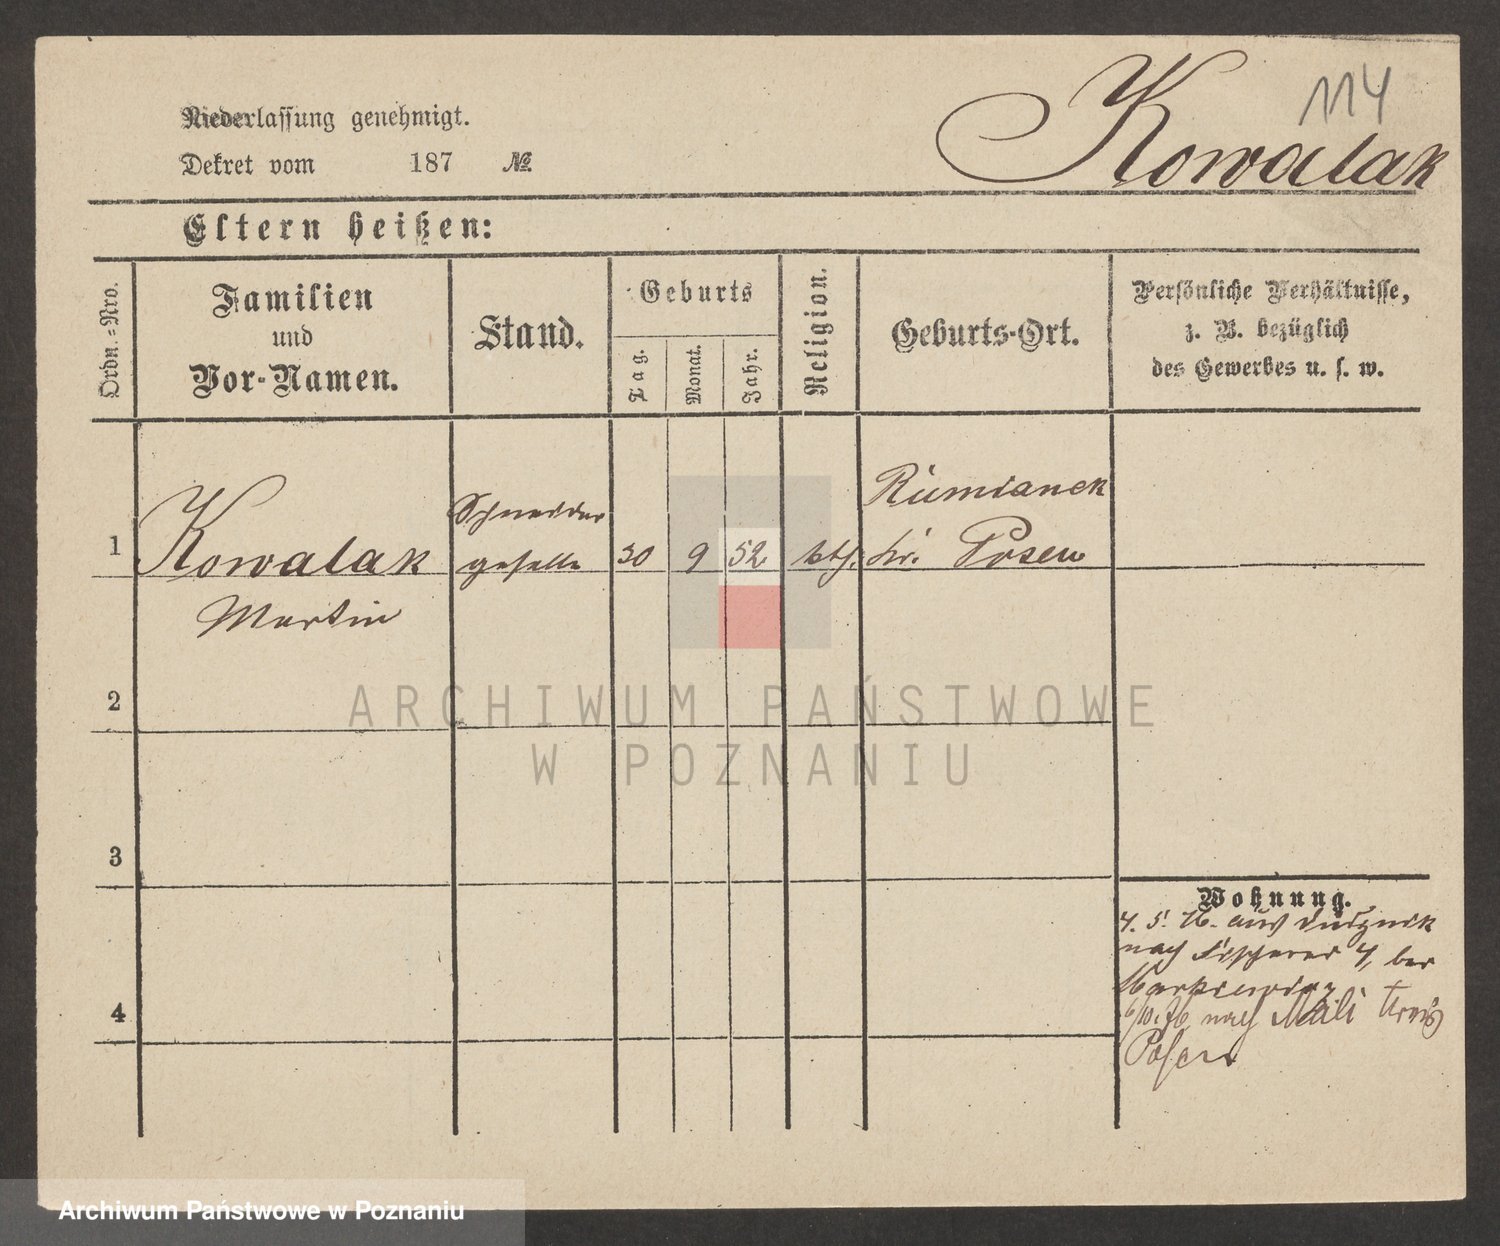 114
Kowalak
Niederlassung genehmigt.
Dekret vom 187 №
Eltern heißen:
Ordn.-Nro.
Familien
und
Vor-Namen.
Stand.
Geburts
Tag.
Monat.
Jahr.
Religion.
Geburts-Ort.
Persönliche Verhältnisse,
z. B. bezüglich
des Gewerbes u. s. w.
1
Kowalak
Martin
Schneider
geselle
30
9
52
kth.
Rumianek
Kr. Posen
2
3
4
Wohnung.
4. 5. 76. aus
nach Fischerei 4, bei
6/10. 76 nach Kreis
Posen
ARCHIWUM PAŃSTWOWE
W POZNANIU
Archiwum Państwowe w Poznaniu